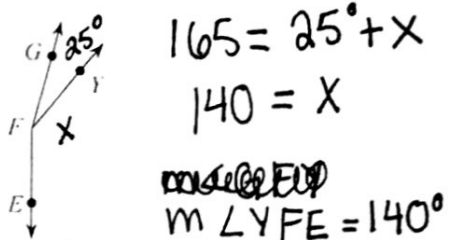 G 25°
Y
F x
E
165 = 25° + x
140 = x
m∠YFE = 140°